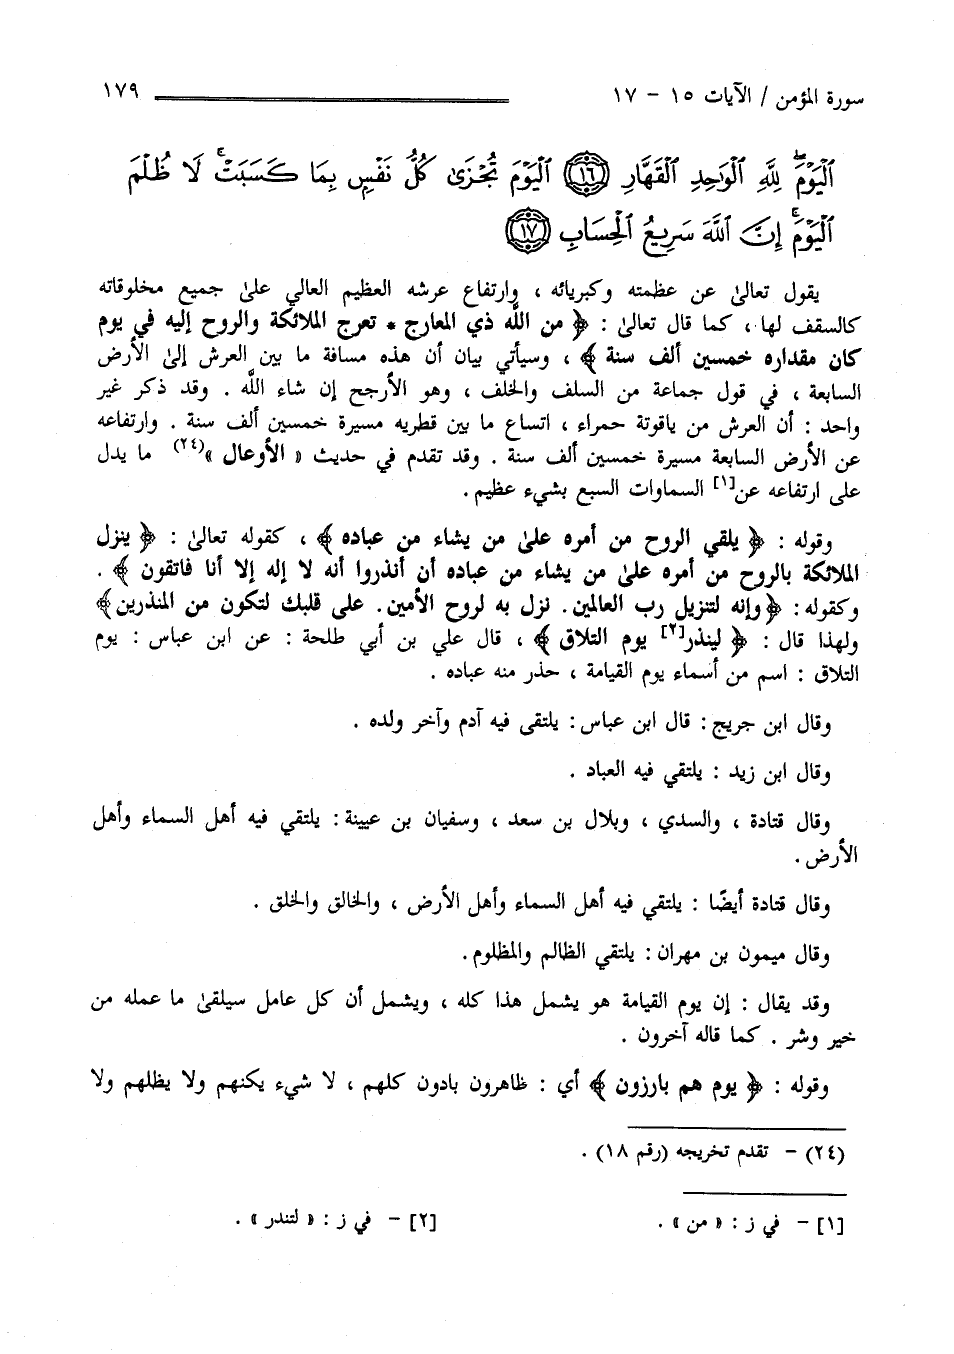 سورة المؤمن / الآيات ١٥ - ١٧ ١٧٩
ٱلْيَوْمَ لِلَّهِ ٱلْوَٰحِدِ ٱلْقَهَّارِ ١٦ ٱلْيَوْمَ تُجْزَىٰ كُلُّ نَفْسٍ بِمَا كَسَبَتْ لَا ظُلْمَ
ٱلْيَوْمَ إِنَّ ٱللَّهَ سَرِيعُ ٱلْحِسَابِ ١٧
يقول تعالىٰ عن عظمته وكبريائه ، وارتفاع عرشه العظيم العالي علىٰ جميع مخلوقاته
كالسقف لها ، كما قال تعالىٰ : ﴿ من الله ذي المعارج * تعرج الملائكة والروح إليه في يوم
كان مقداره خمسين ألف سنة ﴾ ، وسيأتي بيان أن هذه مسافة ما بين العرش إلىٰ الأرض
السابعة ، في قول جماعة من السلف والخلف ، وهو الأرجح إن شاء الله . وقد ذكر غير
واحد : أن العرش من ياقوتة حمراء ، اتساع ما بين قطريه مسيرة خمسين ألف سنة . وارتفاعه
عن الأرض السابعة مسيرة خمسين ألف سنة . وقد تقدم في حديث « الأوعال »(٢٤) ما يدل
على ارتفاعه عن[١] السماوات السبع بشيء عظيم .
وقوله : ﴿ يلقي الروح من أمره علىٰ من يشاء من عباده ﴾ ، كقوله تعالىٰ : ﴿ ينزل
الملائكة بالروح من أمره علىٰ من يشاء من عباده أن أنذروا أنه لا إله إلا أنا فاتقون ﴾ .
وكقوله : ﴿ وإنه لتنزيل رب العالمين . نزل به لروح الأمين . على قلبك لتكون من المنذرين ﴾
ولهذا قال : ﴿ لينذر[٢] يوم التلاق ﴾ ، قال علي بن أبي طلحة : عن ابن عباس : يوم
التلاق : اسم من أسماء يوم القيامة ، حذر منه عباده .
وقال ابن جريج : قال ابن عباس : يلتقى فيه آدم وآخر ولده .
وقال ابن زيد : يلتقي فيه العباد .
وقال قتادة ، والسدي ، وبلال بن سعد ، وسفيان بن عيينة : يلتقي فيه أهل السماء وأهل
الأرض .
وقال قتادة أيضًا : يلتقي فيه أهل السماء وأهل الأرض ، والخالق والخلق .
وقال ميمون بن مهران : يلتقي الظالم والمظلوم .
وقد يقال : إن يوم القيامة هو يشمل هذا كله ، ويشمل أن كل عامل سيلقىٰ ما عمله من
خير وشر . كما قاله آخرون .
وقوله : ﴿ يوم هم بارزون ﴾ أي : ظاهرون بادون كلهم ، لا شيء يكنهم ولا يظلهم ولا
(٢٤) - تقدم تخريجه (رقم ١٨) .
[١] - في ز : « من » . [٢] - في ز : « لتنذر » .